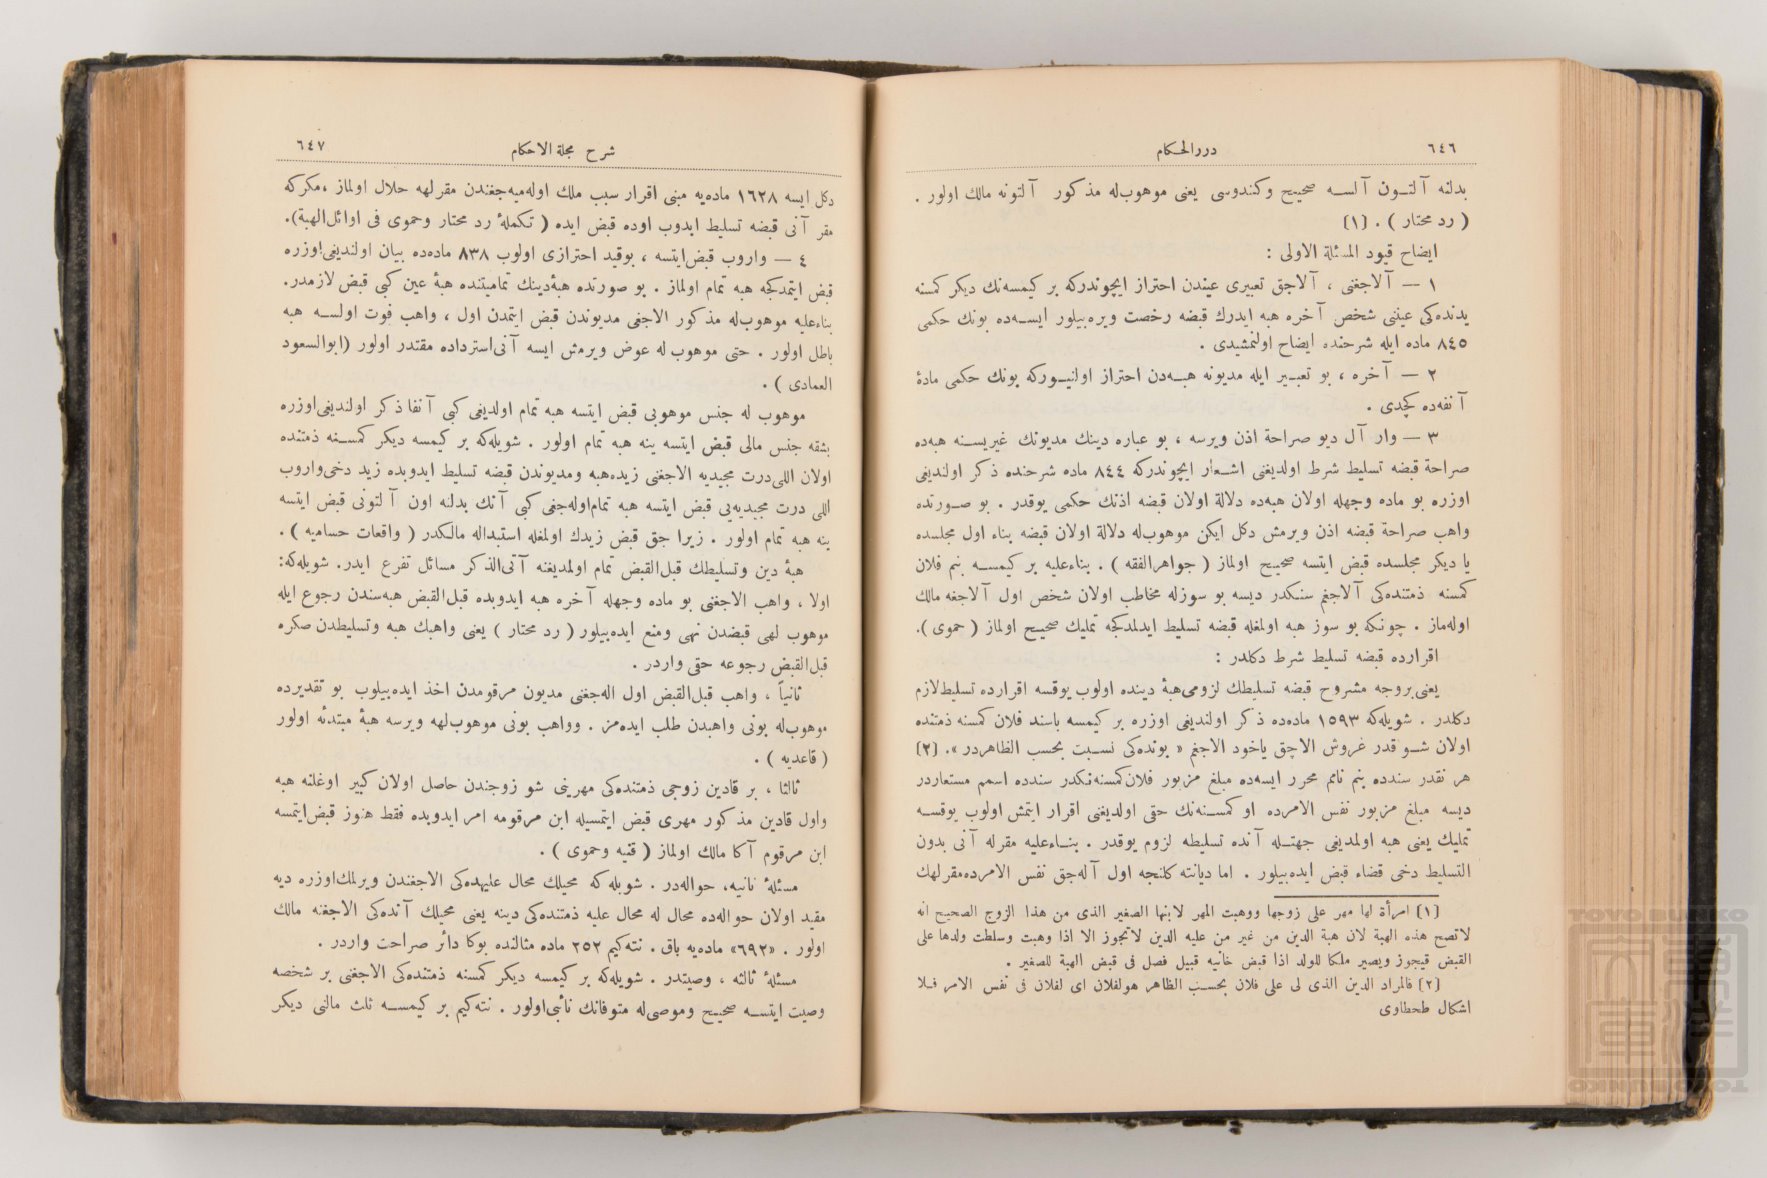 ٦٤٦
دررالحكام
بدلنه آلتون آلسه صحيح وكندوسى يعنى موهوب‌له مذكور آلتونه مالك اولور .
( رد محتار ) . [١]
ايضاح قيود المسئلة الاولى :
١ — آلاجغنى ، آلاجق تعبيرى عيندن احتراز ايچوندركه بر كيمسه‌نك ديكر كمسنه
يدنده‌كى عيننى شخص آخره هبه ايدرك قبضه رخصت ويره‌بيلور ايسه‌ده بونك حكمى
٨٤٥ ماده ايله شرحنده ايضاح اولنمشيدى .
٢ — آخره ، بو تعبير ايله مديونه هبه‌دن احتراز اولنيوركه بونك حكمى مادهٔ
آنفه‌ده كچدى .
٣ — وار آل ديو صراحة اذن ويرسه ، بو عباره دينك مديونك غيريسنه هبه‌ده
صراحة قبضه تسليط شرط اولديغنى اشعار ايچوندركه ٨٤٤ ماده شرحنده ذكر اولنديغى
اوزره بو ماده وجهله اولان هبه‌ده دلالة اولان قبضه اذنك حكمى يوقدر . بو صورتده
واهب صراحة قبضه اذن ويرمش دكل ايكن موهوب‌له دلالة اولان قبضه بناء اول مجلسده
يا ديكر مجلسده قبض ايتسه صحيح اولماز ( جواهرالفقه ) . بناءعليه بر كيمسه بنم فلان
كمسنه ذمتنده‌كى آلاجغم سنكدر ديسه بو سوزله مخاطب اولان شخص اول آلاجغه مالك
اوله‌ماز . چونكه بو سوز هبه اولمغله قبضه تسليط ايدلمدكجه تمليك صحيح اولماز ( حموى ).
اقرارده قبضه تسليط شرط دكلدر :
يعنى‌بروجه مشروح قبضه تسليطك لزومى‌هبهٔ دينده اولوب يوقسه اقرارده تسليط‌لازم
دكلدر . شويله‌كه ١٥٩٣ ماده‌ده ذكر اولنديغى اوزره بر كيمسه باسند فلان كمسنه ذمتنده
اولان شو قدر غروش الاچق ياخود الاجغم « بونده‌كى نسبت بحسب الظاهردر ». [٢]
هر نقدر سندده بنم نامم محرر ايسه‌ده مبلغ مزبور فلان‌كمسنه‌نكدر سندده اسمم مستعاردر
ديسه مبلغ مزبور نفس الامرده او كمسنه‌نك حقى اولديغنى اقرار ايتمش اولوب يوقسه
تمليك يعنى هبه اولمديغى جهتله آنده تسليطه لزوم يوقدر . بناءعليه مقرله آنى بدون
التسليط دخى قضاء قبض ايده‌بيلور . اما ديانته كلنجه اول آله‌جق نفس الامرده‌مقرلهك
[١] امرأة لها مهر على زوجها ووهبت المهر لابنها الصغير الذى من هذا الزوج الصحيح انه
لاتصح هذه الهبة لان هبة الدين من غير من عليه الدين لاتجوز الا اذا وهبت وسلطت ولدها على
القبض فيجوز ويصير ملكا للولد اذا قبض خانيه قبيل فصل فى قبض الهبة للصغير .
[٢] فالمراد الدين الذى لى على فلان بحسب الظاهر هولفلان اى لفلان فى نفس الامر فلا
اشكال طحطاوى
شرح مجلة الاحكام
٦٤٧
دكل ايسه ١٦٢٨ ماده‌يه مبنى اقرار سبب ملك اوله‌ميه‌جغندن مقرلهه حلال اولماز ،مكركه
مقر آنى قبضه تسليط ايدوب اوده قبض ايده ( تكملهٔ رد محتار وحموى فى اوائل‌الهبة).
٤ — واروب قبض‌ايتسه ، بوقيد احترازى اولوب ٨٣٨ ماده‌ده بيان اولنديغى‌اوزره
قبض ايتمدكجه هبه تمام اولماز . بو صورتده هبهٔ‌دينك تماميتنده هبهٔ عين كبى قبض لازمدر.
بناءعليه موهوب‌له مذكور الاجغى مديوندن قبض ايتمدن اول ، واهب فوت اولسه هبه
باطل اولور . حتى موهوب له عوض ويرمش ايسه آنى‌استرداده مقتدر اولور (ابوالسعود
العمادى ) .
موهوب له جنس موهوبى قبض ايتسه هبه تمام اولديغى كبى آنفا ذكر اولنديغى‌اوزره
بشقه جنس مالى قبض ايتسه ينه هبه تمام اولور . شويله‌كه بر كيمسه ديكر كمسنه ذمتنده
اولان اللى‌درت مجيديه الاجغنى زيده‌هبه ومديوندن قبضه تسليط ايدوبده زيد دخى‌واروب
اللى درت مجيديه‌يى قبض ايتسه هبه تمام‌اوله‌جغى كبى آنك بدلنه اون آلتونى قبض ايتسه
ينه هبه تمام اولور . زيرا حق قبض زيدك اولمغله استبداله مالكدر ( واقعات حساميه ) .
هبهٔ دين وتسليطك قبل‌القبض تمام اولمديغنه آتى‌الذكر مسائل تفرع ايدر. شويله‌كه:
اولا ، واهب الاجغنى بو ماده وجهله آخره هبه ايدوبده قبل‌القبض هبه‌سندن رجوع ايله
موهوب لهى قبضدن نهى ومنع ايده‌بيلور ( رد محتار ) يعنى واهبك هبه وتسليطدن صكره
قبل‌القبض رجوعه حقى واردر .
ثانياً ، واهب قبل‌القبض اول اله‌جغنى مديون مرقومدن اخذ ايده‌بيلوب بو تقديرده
موهوب‌له بونى واهبدن طلب ايده‌مز . وواهب بونى موهوب‌لهه ويرسه هبهٔ مبتدئه اولور
( قاعديه ) .
ثالثا ، بر قادين زوجى ذمتنده‌كى مهرينى شو زوجندن حاصل اولان كبير اوغلنه هبه
واول قادين مذكور مهرى قبض ايتمسيله ابن مرقومه امر ايدوبده فقط هنوز قبض‌ايتمسه
ابن مرقوم آكا مالك اولماز ( قنيه وحموى ) .
مسئلهٔ ثانيه، حواله‌در . شويله‌كه محيلك محال عليهده‌كى الاجغندن ويرلمك‌اوزره ديه
مقيد اولان حواله‌ده محال له محال عليه ذمتنده‌كى دينه يعنى محيلك آنده‌كى الاجغنه مالك
اولور . «٦٩٢» ماده‌يه باق . نته‌كيم ٢٥٢ ماده مثالنده بوكا دائر صراحت واردر .
مسئلهٔ ثالثه ، وصيتدر . شويله‌كه بر كيمسه ديكر كمسنه ذمتنده‌كى الاجغنى بر شخصه
وصيت ايتسه صحيح وموصى‌له متوفانك نائبى‌اولور . نته‌كيم بر كيمسه ثلث مالنى ديكر
TOYO BUNKO